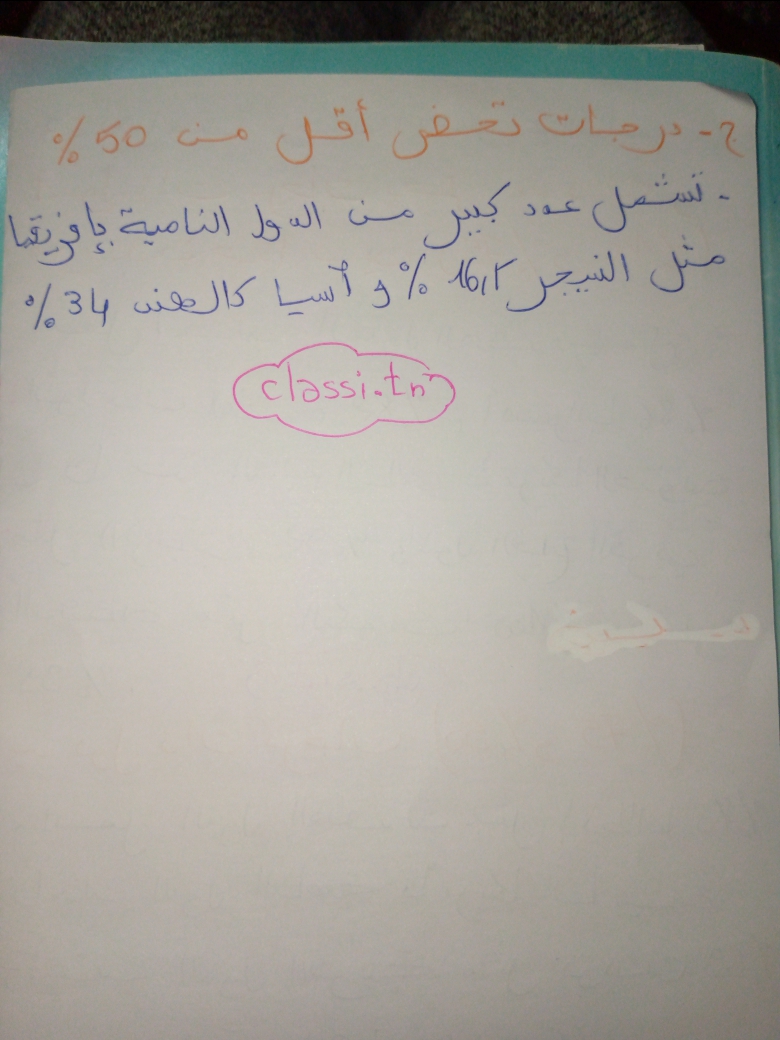 ج - درجات تحضر أقل من 50 %
- تشمل عدد كبير من الدول النامية بإفريقيا
مثل النيجر 16,2 % و آسيا كالهند 34 %
classi.tn